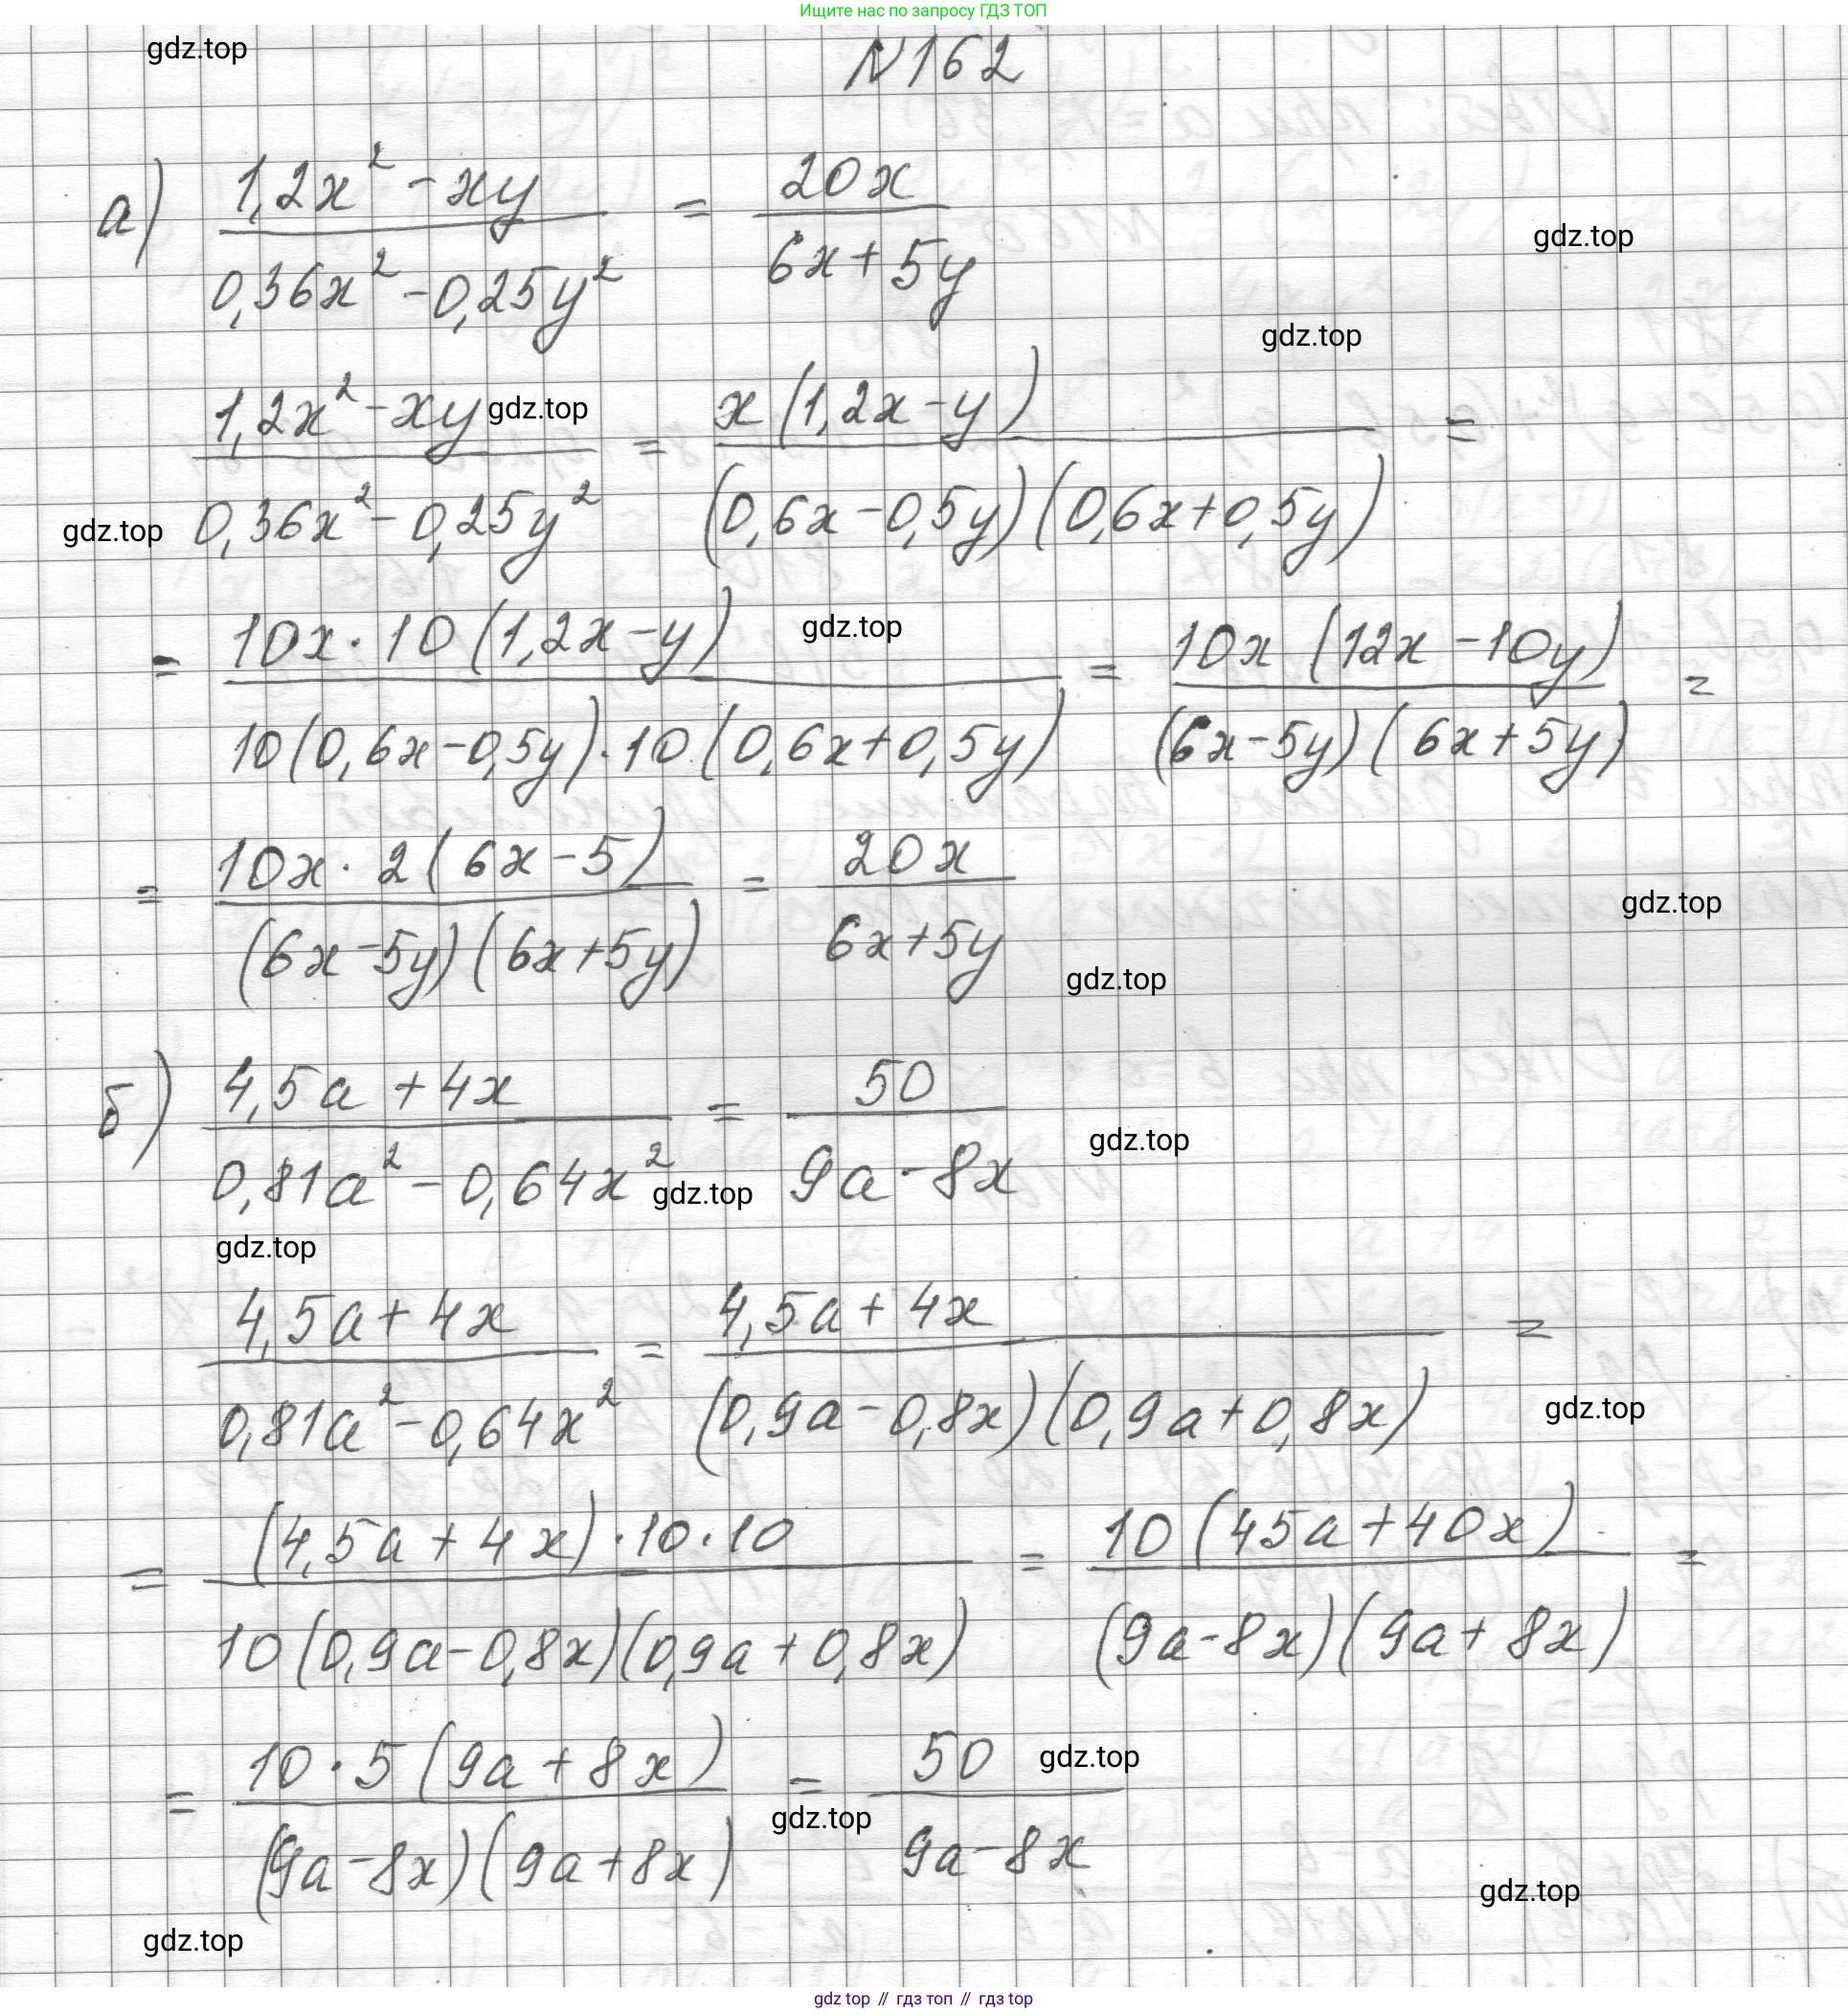 Ищите нас по запросу ГДЗ ТОП
gdz.top
N162
а) (1,2x² - xy)/(0,36x² - 0,25y²) = 20x/(6x + 5y)
gdz.top
gdz.top
(1,2x² - xy)/(0,36x² - 0,25y²) = x(1,2x - y)/((0,6x - 0,5y)(0,6x + 0,5y)) =
gdz.top
gdz.top
= 10x · 10(1,2x - y)/(10(0,6x - 0,5y) · 10(0,6x + 0,5y)) = 10x(12x - 10y)/((6x - 5y)(6x + 5y)) =
gdz.top
= 10x · 2(6x - 5)/((6x - 5y)(6x + 5y)) = 20x/(6x + 5y)
gdz.top
gdz.top
б) (4,5a + 4x)/(0,81a² - 0,64x²) = 50/(9a - 8x)
gdz.top
gdz.top
gdz.top
(4,5a + 4x)/(0,81a² - 0,64x²) = (4,5a + 4x)/((0,9a - 0,8x)(0,9a + 0,8x)) =
gdz.top
= (4,5a + 4x) · 10 · 10/(10(0,9a - 0,8x)(0,9a + 0,8x)) = 10(45a + 40x)/((9a - 8x)(9a + 8x)) =
= 10 · 5(9a + 8x)/((9a - 8x)(9a + 8x)) = 50/(9a - 8x)
gdz.top
gdz.top
gdz.top
gdz.top
gdz top // гдз топ // гдз top